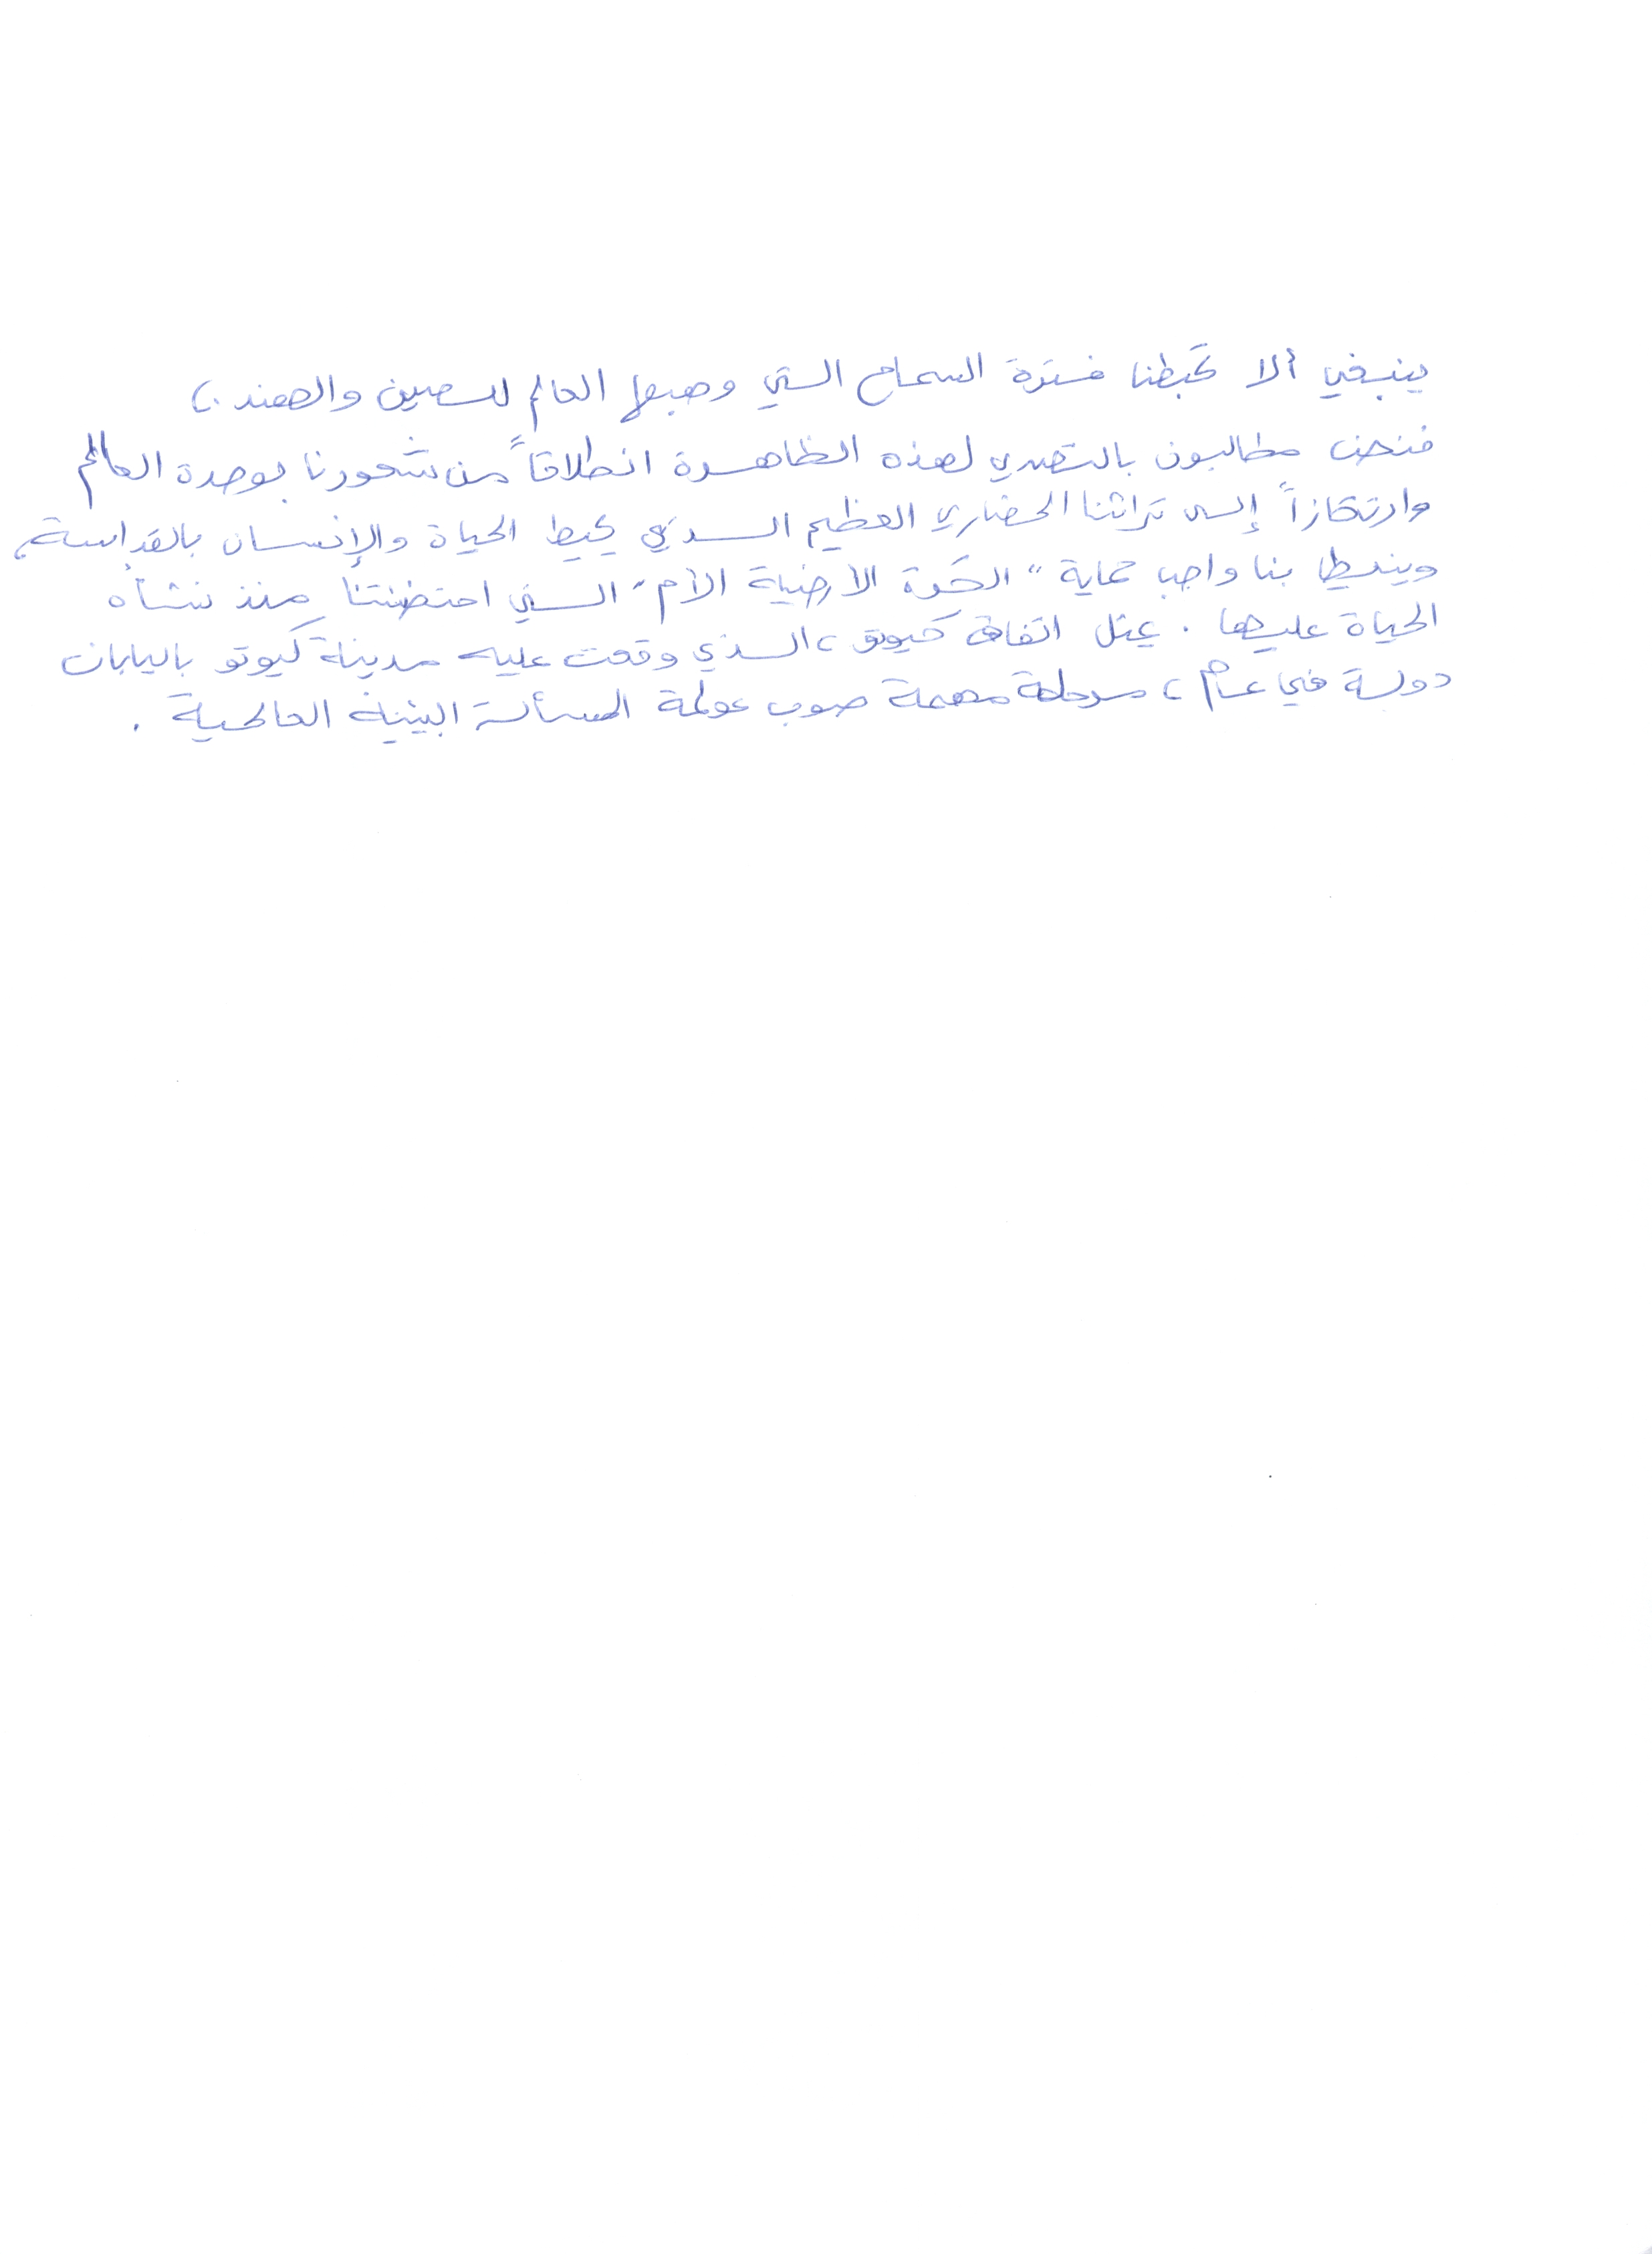 ينبغي ألا تحبطنا فترة السماح التي وهبها العالم للصين والهند.،
فنحن مطالبون بالتصدي لهذه الظاهرة انطلاقاً من شعورنا بوحدة العالم
وارتكازاً إلى تراثنا الحضاري العظيم الذي يحيط الحياة والإنسان بالقداسة،
وينيط بنا واجب حماية "الكرة الأرضية الأم" التي احتضنتنا منذ نشأة
الحياة عليها. يمثل اتفاق كيوتو، الذي وقعت عليه مدينة كيوتو باليابان
دولة في عام، مرحلة مهمة صوب عولمة المسألة البيئية العالمية.